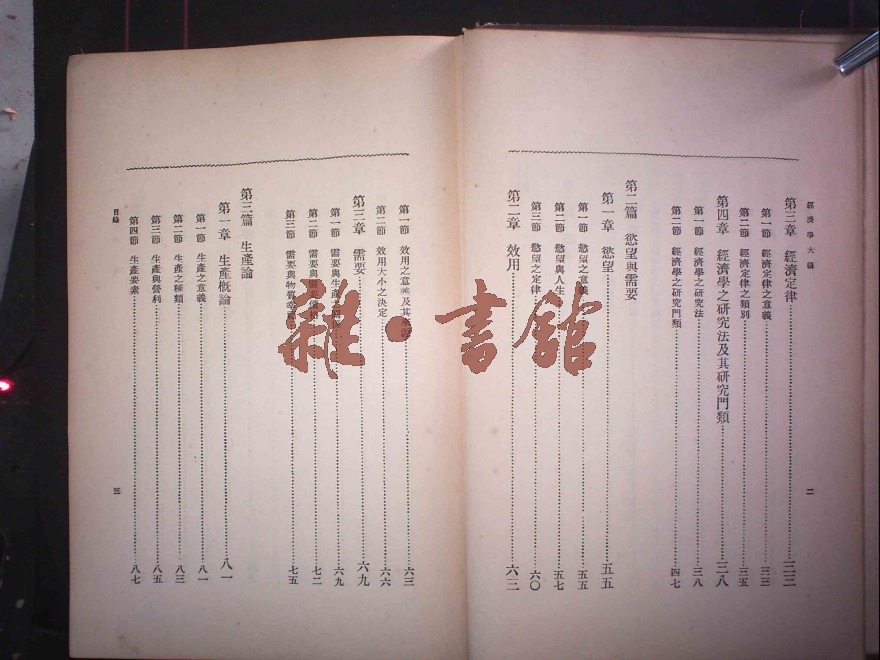 經濟學大綱
二
第三章 經濟定律 三三
第一節 經濟定律之意義 三三
第二節 經濟定律之類別 三五
第四章 經濟學之研究法及其研究門類 三八
第一節 經濟學之研究法 三八
第二節 經濟學之研究門類 四七
第二篇 慾望與需要
第一章 慾望 五五
第一節 慾望之意義 五五
第二節 慾望與人生 五七
第三節 慾望之定律 六〇
第二章 效用 六三
第一節 效用之意義及其 六三
第二節 效用大小之決定 六六
第三章 需要 六九
第一節 需要與生產 六九
第二節 需要與需要價格 七二
第三節 需要與物質 七五
第三篇 生產論
第一章 生產概論 八一
第一節 生產之意義 八一
第二節 生產之種類 八三
第三節 生產與營利 八五
第四節 生產要素 八七
目錄
三
雜·書館